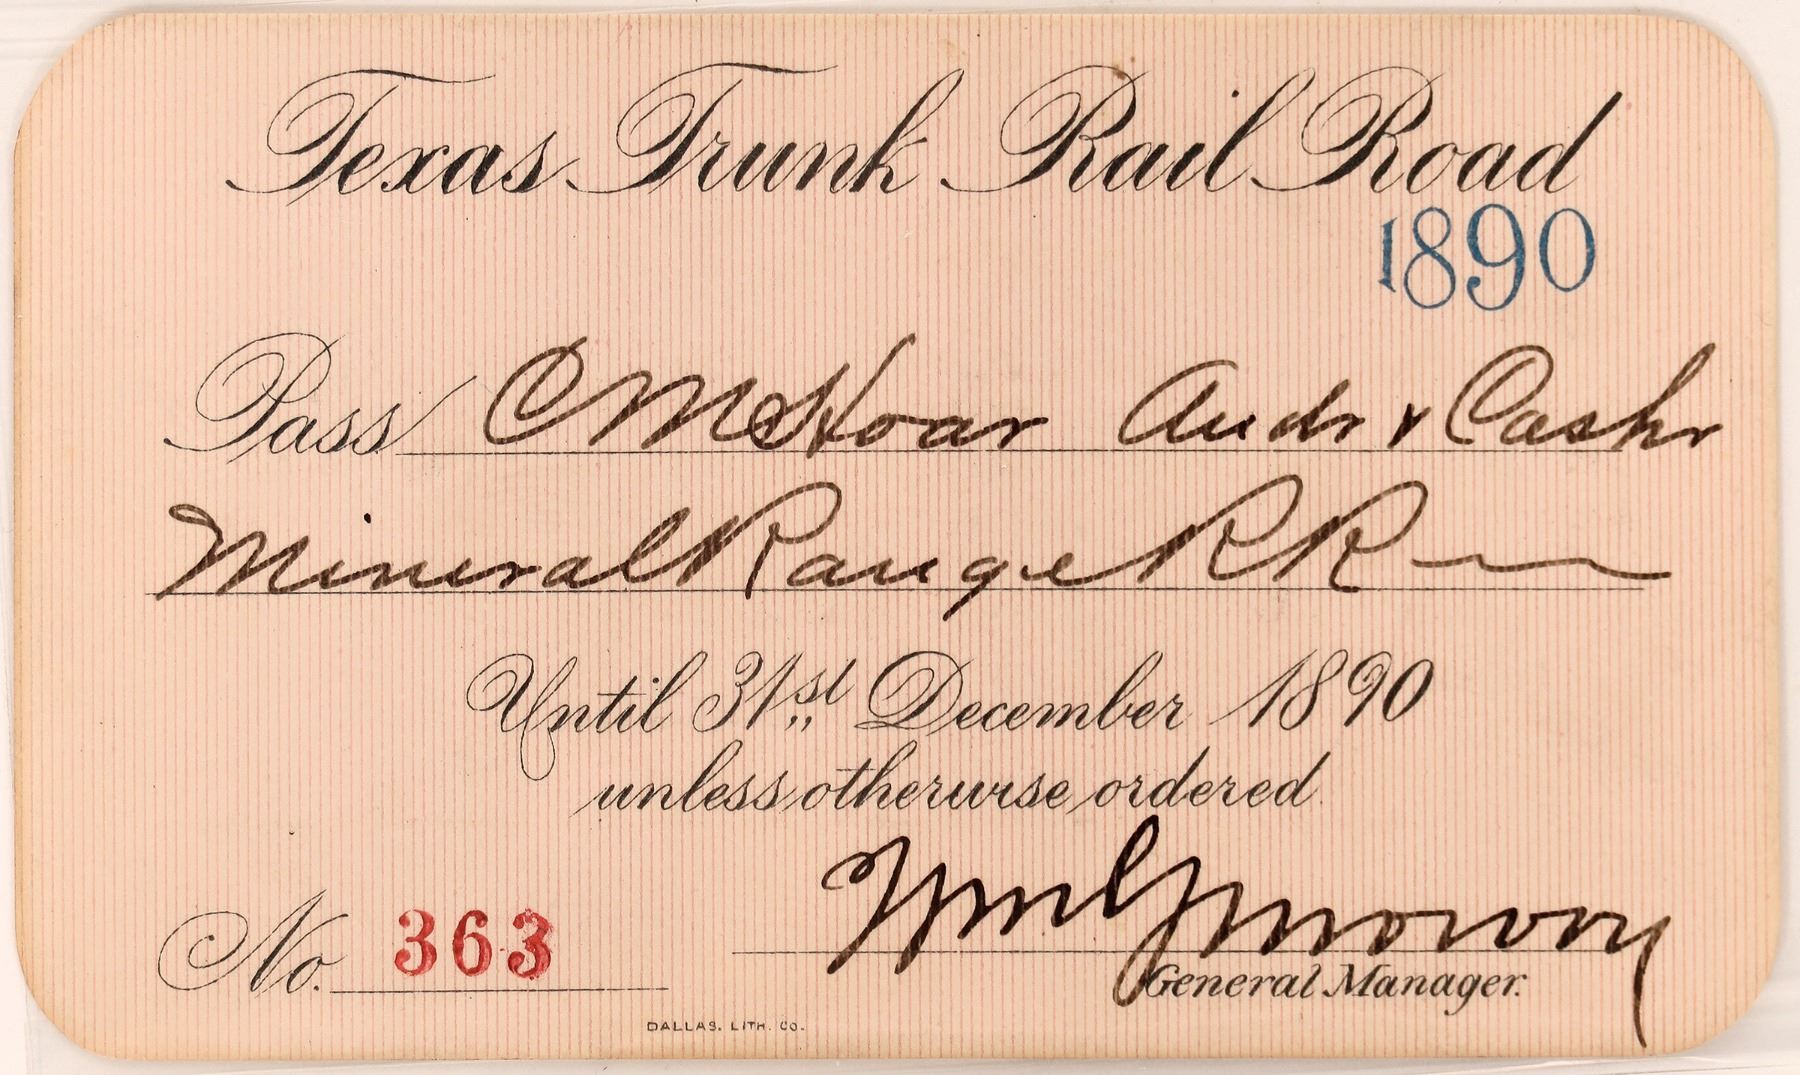 Texas Trunk Rail Road
1890
Pass C McHoar Audr & Cashr
Mineral Range RR
Until 31st December 1890
unless otherwise ordered
No. 363
Wm
General Manager.
DALLAS. LITH. CO.